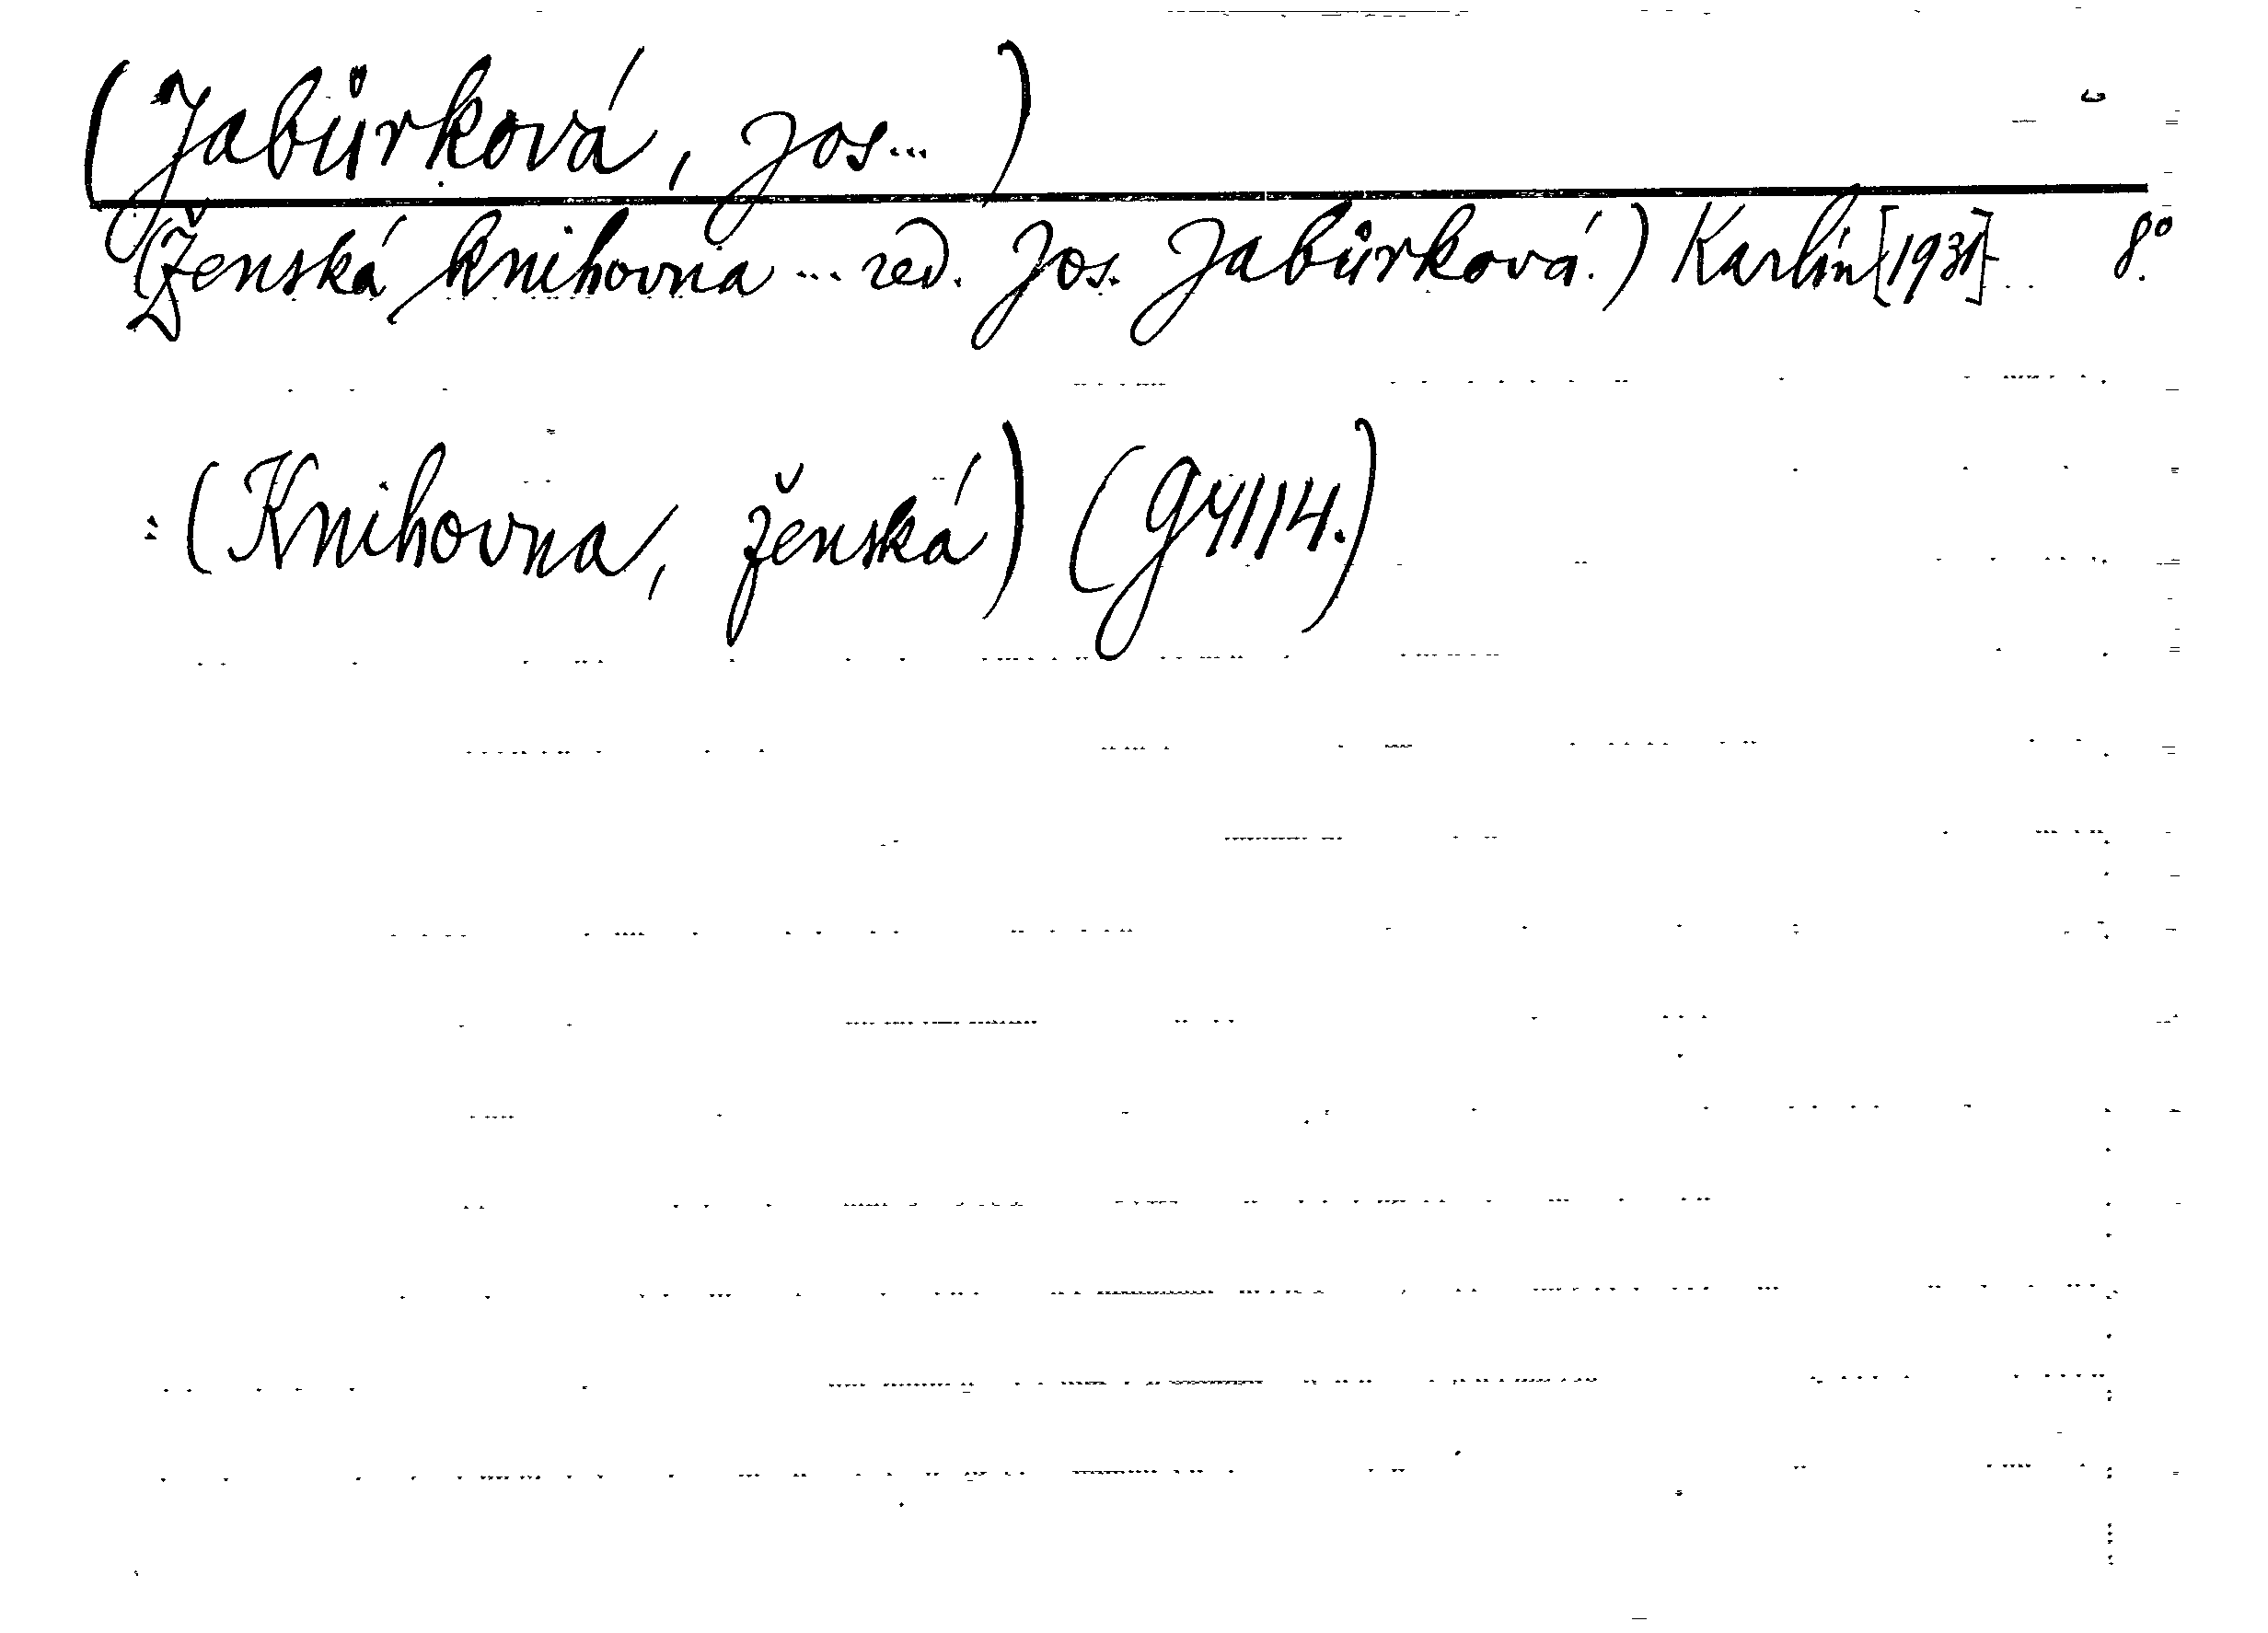 (Jabůrková, Jos...)
(Ženská knihovna ... red. Jos. Jabůrková.) Karlín [1931]- 8°.
: (Knihovna, ženská) (g4114.)